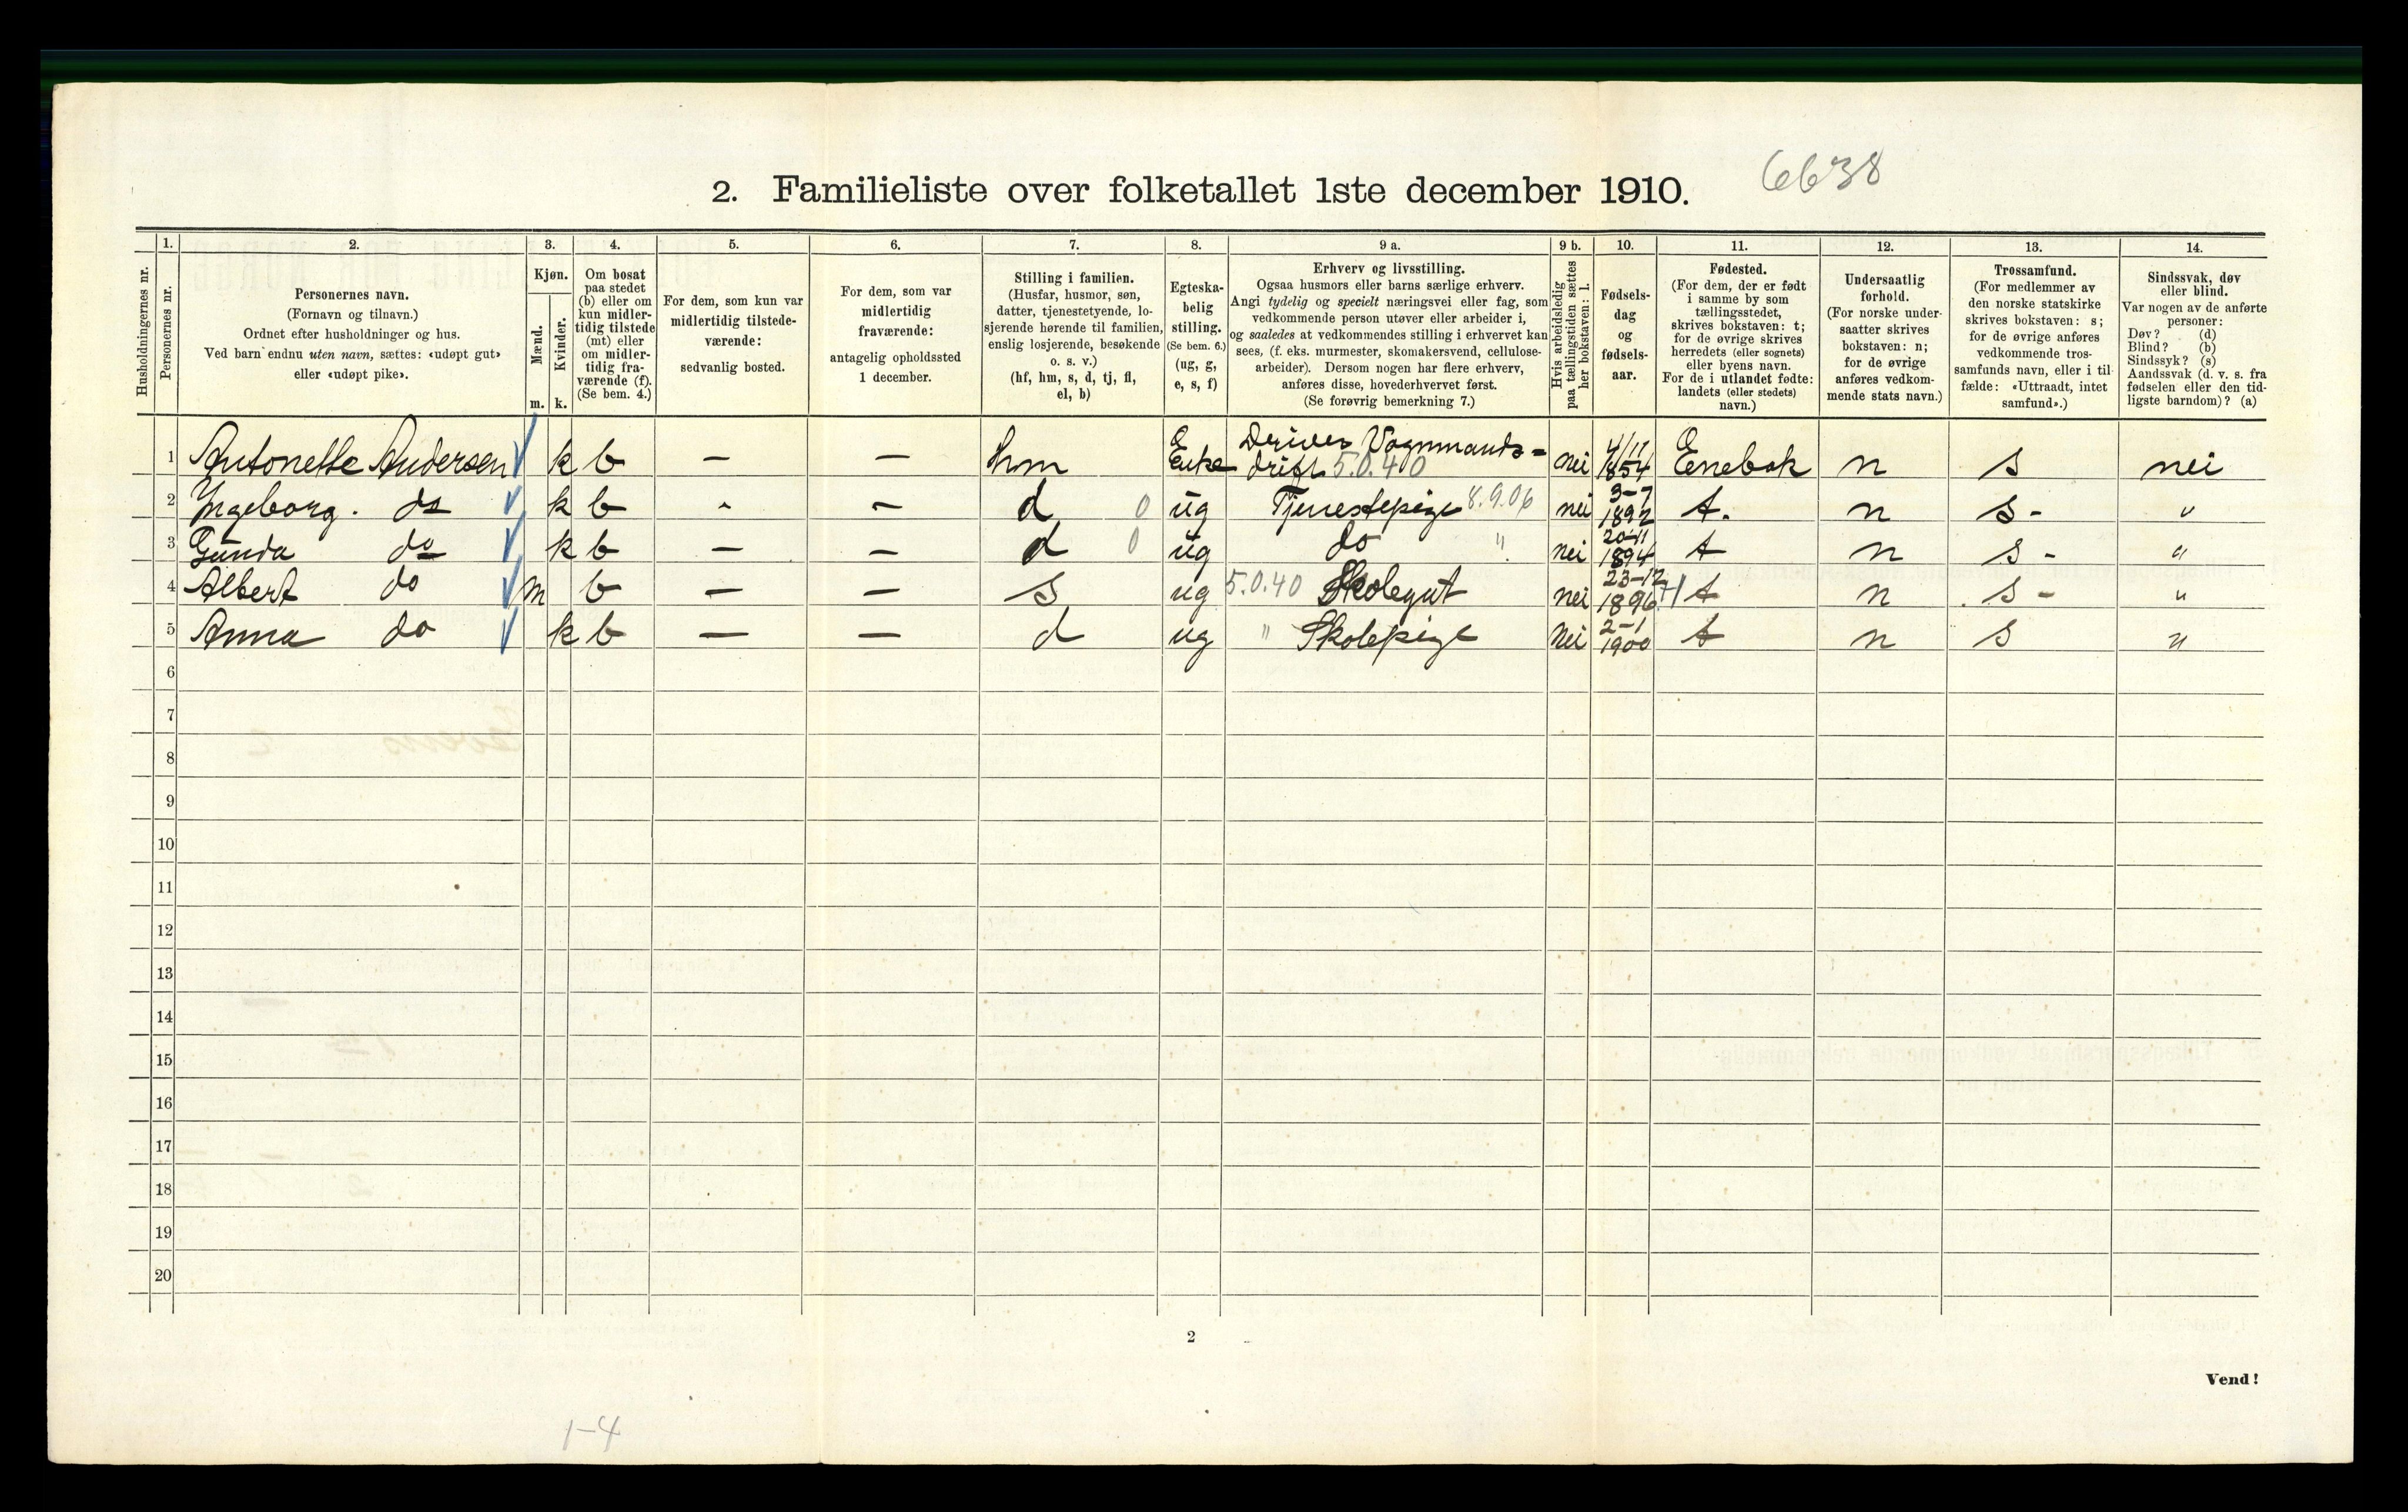 6638
2. Familieliste over folketallet 1ste december 1910.
Husholdningernes nr.
1.
Personernes nr.
2.
Personernes navn.
(Fornavn og tilnavn.)
Ordnet efter husholdninger og hus.
Ved barn endnu uten navn, sættes: «udøpt gut»
eller «udøpt pike».
3.
Kjøn.
Mænd.
m.
Kvinder.
k.
4.
Om bosat
paa stedet
(b) eller om
kun midler-
tidig tilstede
(mt) eller
om midler-
tidig fra-
værende (f).
(Se bem. 4.)
5.
For dem, som kun var
midlertidig tilstede-
værende:
sedvanlig bosted.
6.
For dem, som var
midlertidig
fraværende:
antagelig opholdssted
1 december.
7.
Stilling i familien.
(Husfar, husmor, søn,
datter, tjenestetyende, lo-
sjerende hørende til familien,
enslig losjerende, besøkende
o. s. v.)
(hf, hm, s, d, tj, fl,
el, b)
8.
Egteska-
belig
stilling.
(Se bem. 6.)
(ug, g,
e, s, f)
9 a.
Erhverv og livsstilling.
Ogsaa husmors eller barns særlige erhverv.
Angi tydelig og specielt næringsvei eller fag, som
vedkommende person utøver eller arbeider i,
og saaledes at vedkommendes stilling i erhvervet kan
sees, (f. eks. murmester, skomakersvend, cellulose-
arbeider). Dersom nogen har flere erhverv,
anføres disse, hovederhvervet først.
(Se forøvrig bemerkning 7.)
9 b.
Hvis arbeidsledig
paa tællingstiden sættes
her bokstaven: l.
10.
Fødsels-
dag
og
fødsels-
aar.
11.
Fødested.
(For dem, der er født
i samme by som
tællingsstedet,
skrives bokstaven: t;
for de øvrige skrives
herredets (eller sognets)
eller byens navn.
For de i utlandet fødte:
landets (eller stedets)
navn.)
12.
Undersaatlig
forhold.
(For norske under-
saatter skrives
bokstaven: n;
for de øvrige
anføres vedkom-
mende stats navn.)
13.
Trossamfund.
(For medlemmer av
den norske statskirke
skrives bokstaven: s;
for de øvrige anføres
vedkommende tros-
samfunds navn, eller i til-
fælde: «Uttraadt, intet
samfund».)
14.
Sindssvak, døv
eller blind.
Var nogen av de anførte
personer:
Døv? (d)
Blind? (b)
Sindssyk? (s)
Aandssvak (d. v. s. fra
fødselen eller den tid-
ligste barndom)? (a)
1 Antonette Andersen k b — — hm E Enke Driver Vognmands= drift 5.0.40 nei 4/11 1854 Enebak n s nei
2 Ingeborg. do k b - — d 0 ug Tjenestepige 8.9.06 nei 3-7 1892 t. n s - "
3 Gunda do k b — — d 0 ug do " nei 20-11 1894 t n s - "
4 Albert do m b — — s ug 5.0.40 Skolegut nei 23-12 1896 t n s - "
5 Anna do k b — — d ug " Skolepige Nei 2-1 1900 t n s "
6
7
8
9
10
11
12
13
14
15
16
17
18
19
20
2
Vend!
1-4